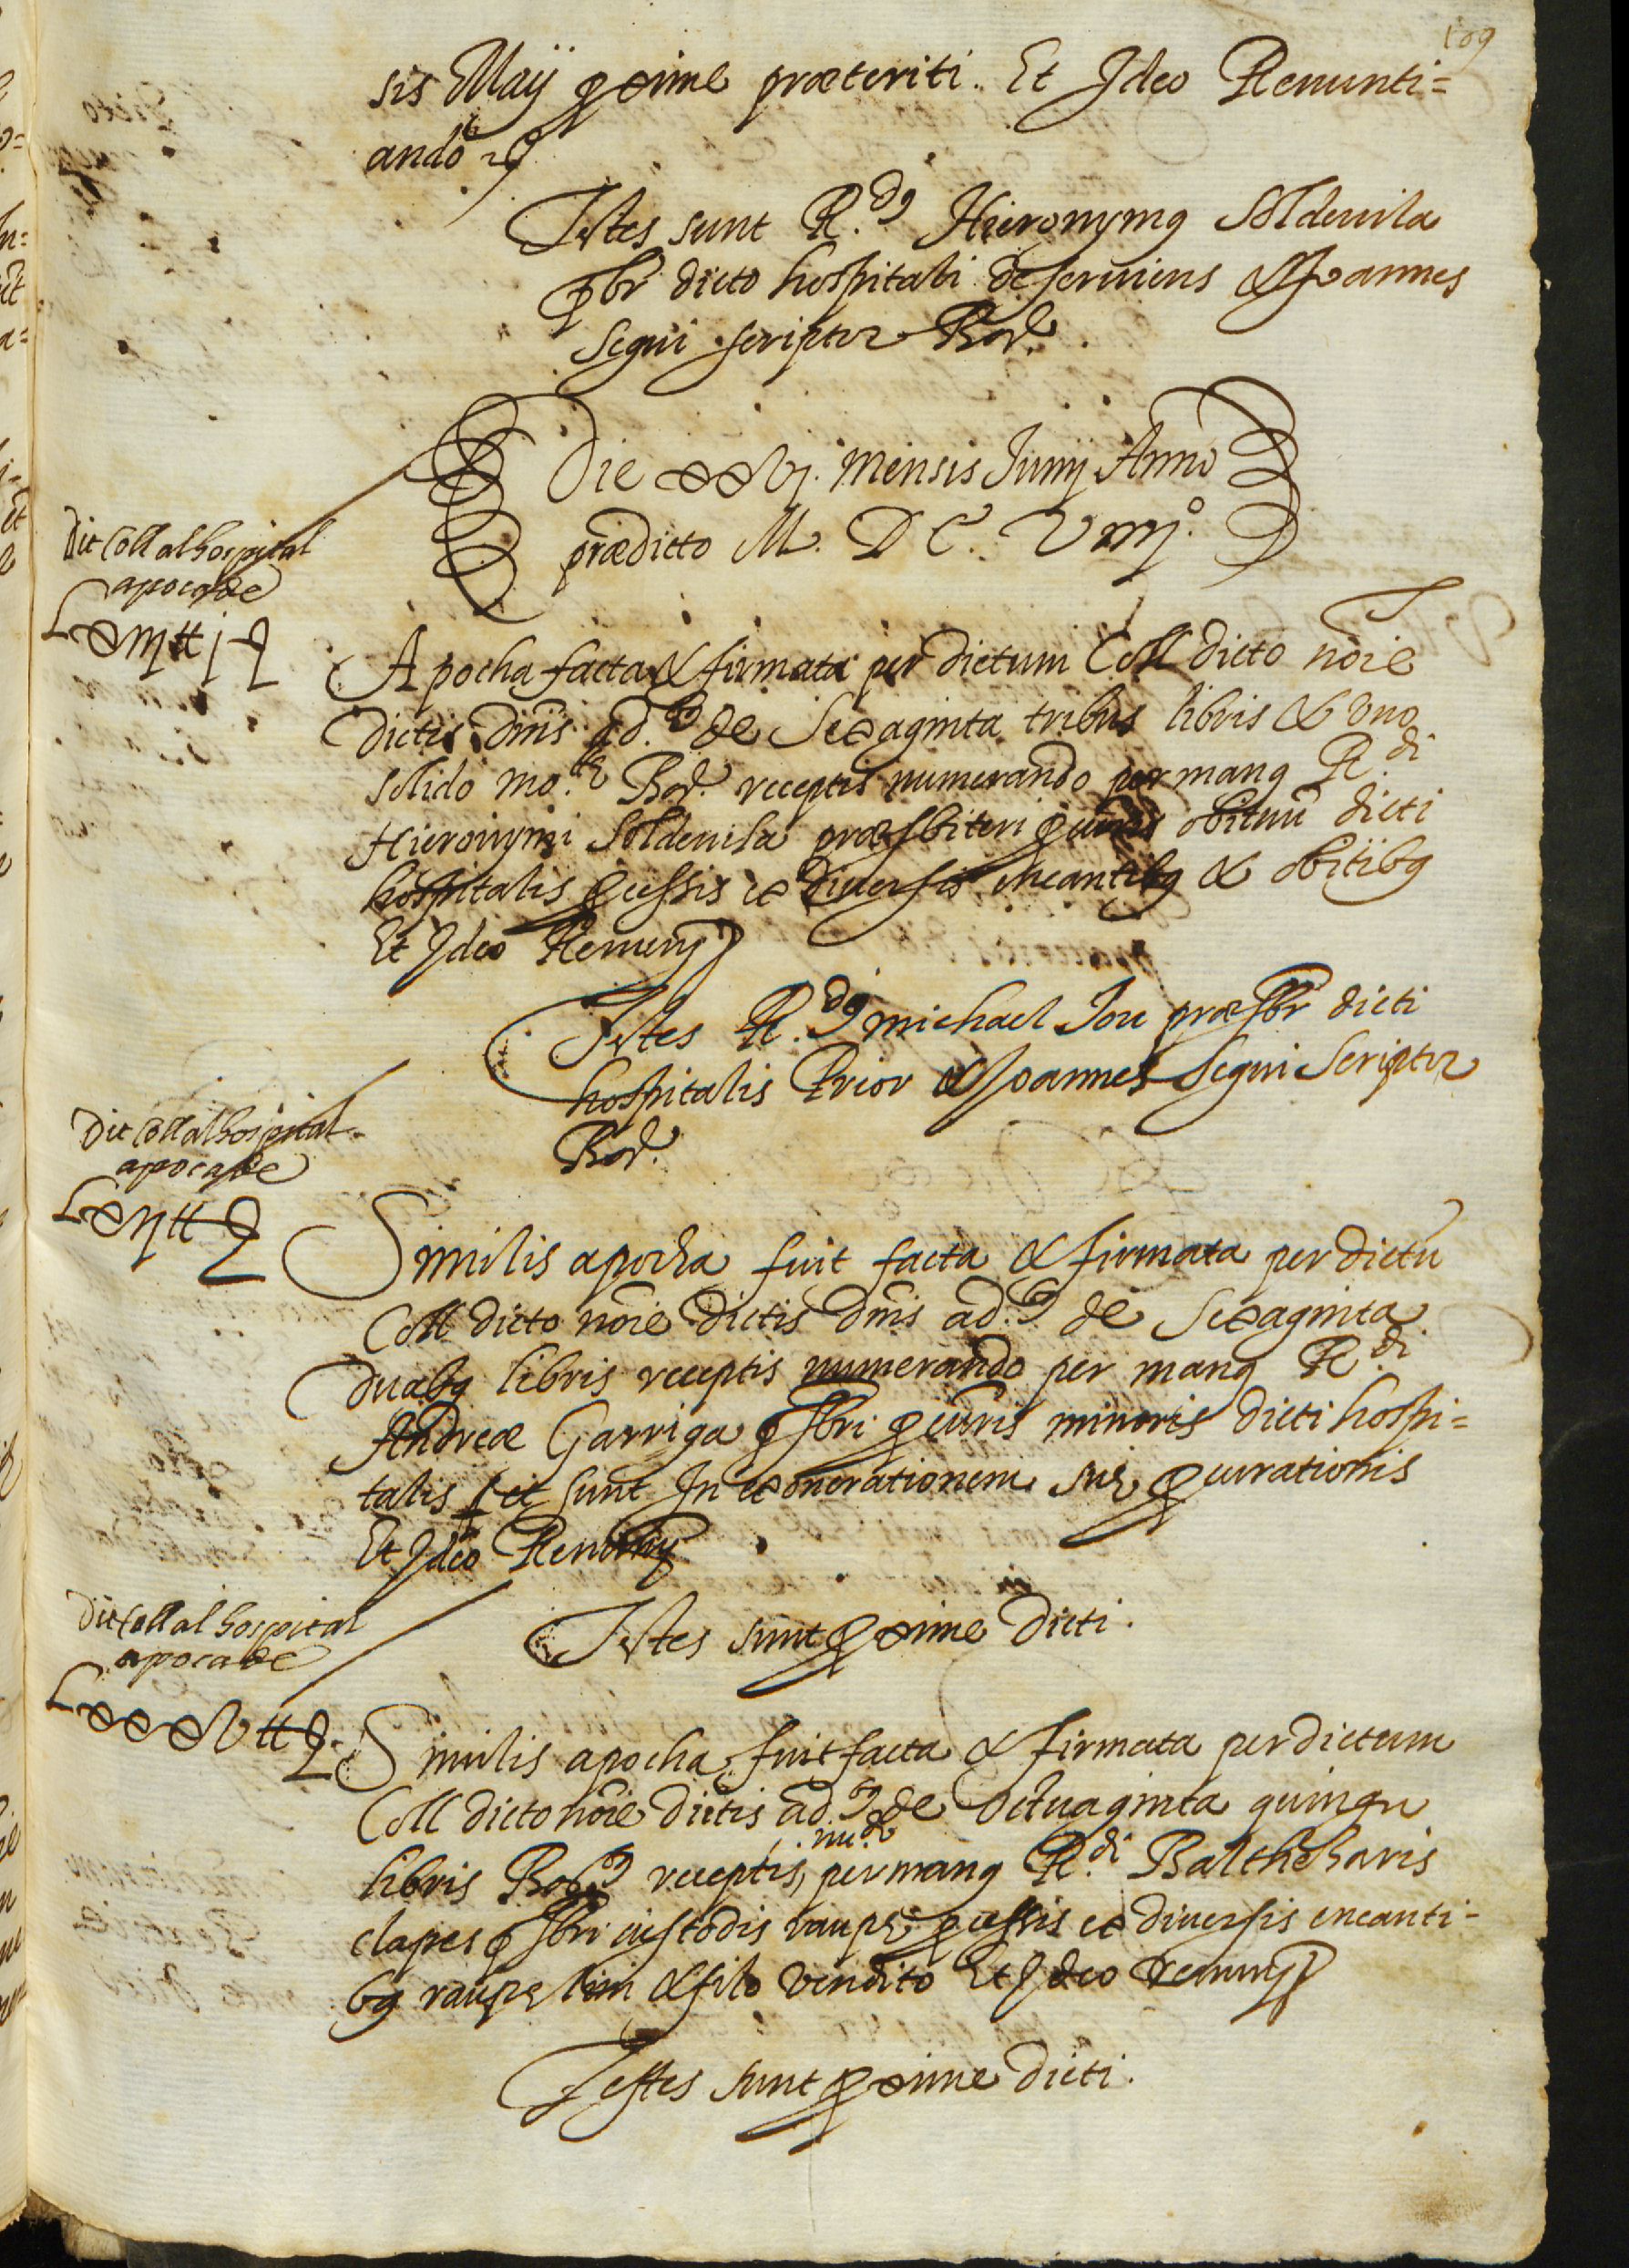 109
sis Maij proxime præteriti. Et Ideo Renunti=
ando &c
Testes sunt R.dus Hieronymus Soldevila
pbr dicto hospitali deserviens & Joannes
Segui scriptor Bar.e
Die xxvj. mensis Junij Anno
prædicto M. DC. Viiijº.
Dit Coll al hospital
apoca de
Lxiij ll j s
Apocha facta & firmata per dictum Coll dicto noie
dictis dnis ad.bus de Sexaginta tribus libris & uno
solido mo.te Bar.e receptis numerando per manus R.di
Hieronymi Soldevila præsbiteri procuris obituu dicti
hospitalis processis ex diversis encantibus & obitibus
Et Ideo Renun
Testes R.dus michael Jou præsbr dicti
hospitalis Prior & Joannes Segui Scriptor
Bar.e
Dit Coll al hospital
apoca de
Lxij ll
Similis apocha fuit facta & firmata per dictu
Coll dicto noie dictis dnis ad.bus de Sexaginta
duabus libris receptis numerando per manus R.di
Andreæ Garriga psbri procuris minoris dicti hospi=
talis et sunt In exonerationem suę procurationis
Et Ideo Renun
Testes sunt proxime dicti.
Dit Coll al hospital
apoca de
Lxxxv ll
Similis apocha fuit facta & firmata per dictum
Coll dicto noie dictis ad.bus de Octuaginta quinqu
libris Bar. receptis, nu.do per manus R.di Balthesaris
clapes psbri custodis raupę processis ex diversis encanti-
bus raupę lini & filo vendito Et Ideo Renun
Testes sunt proxime dicti.